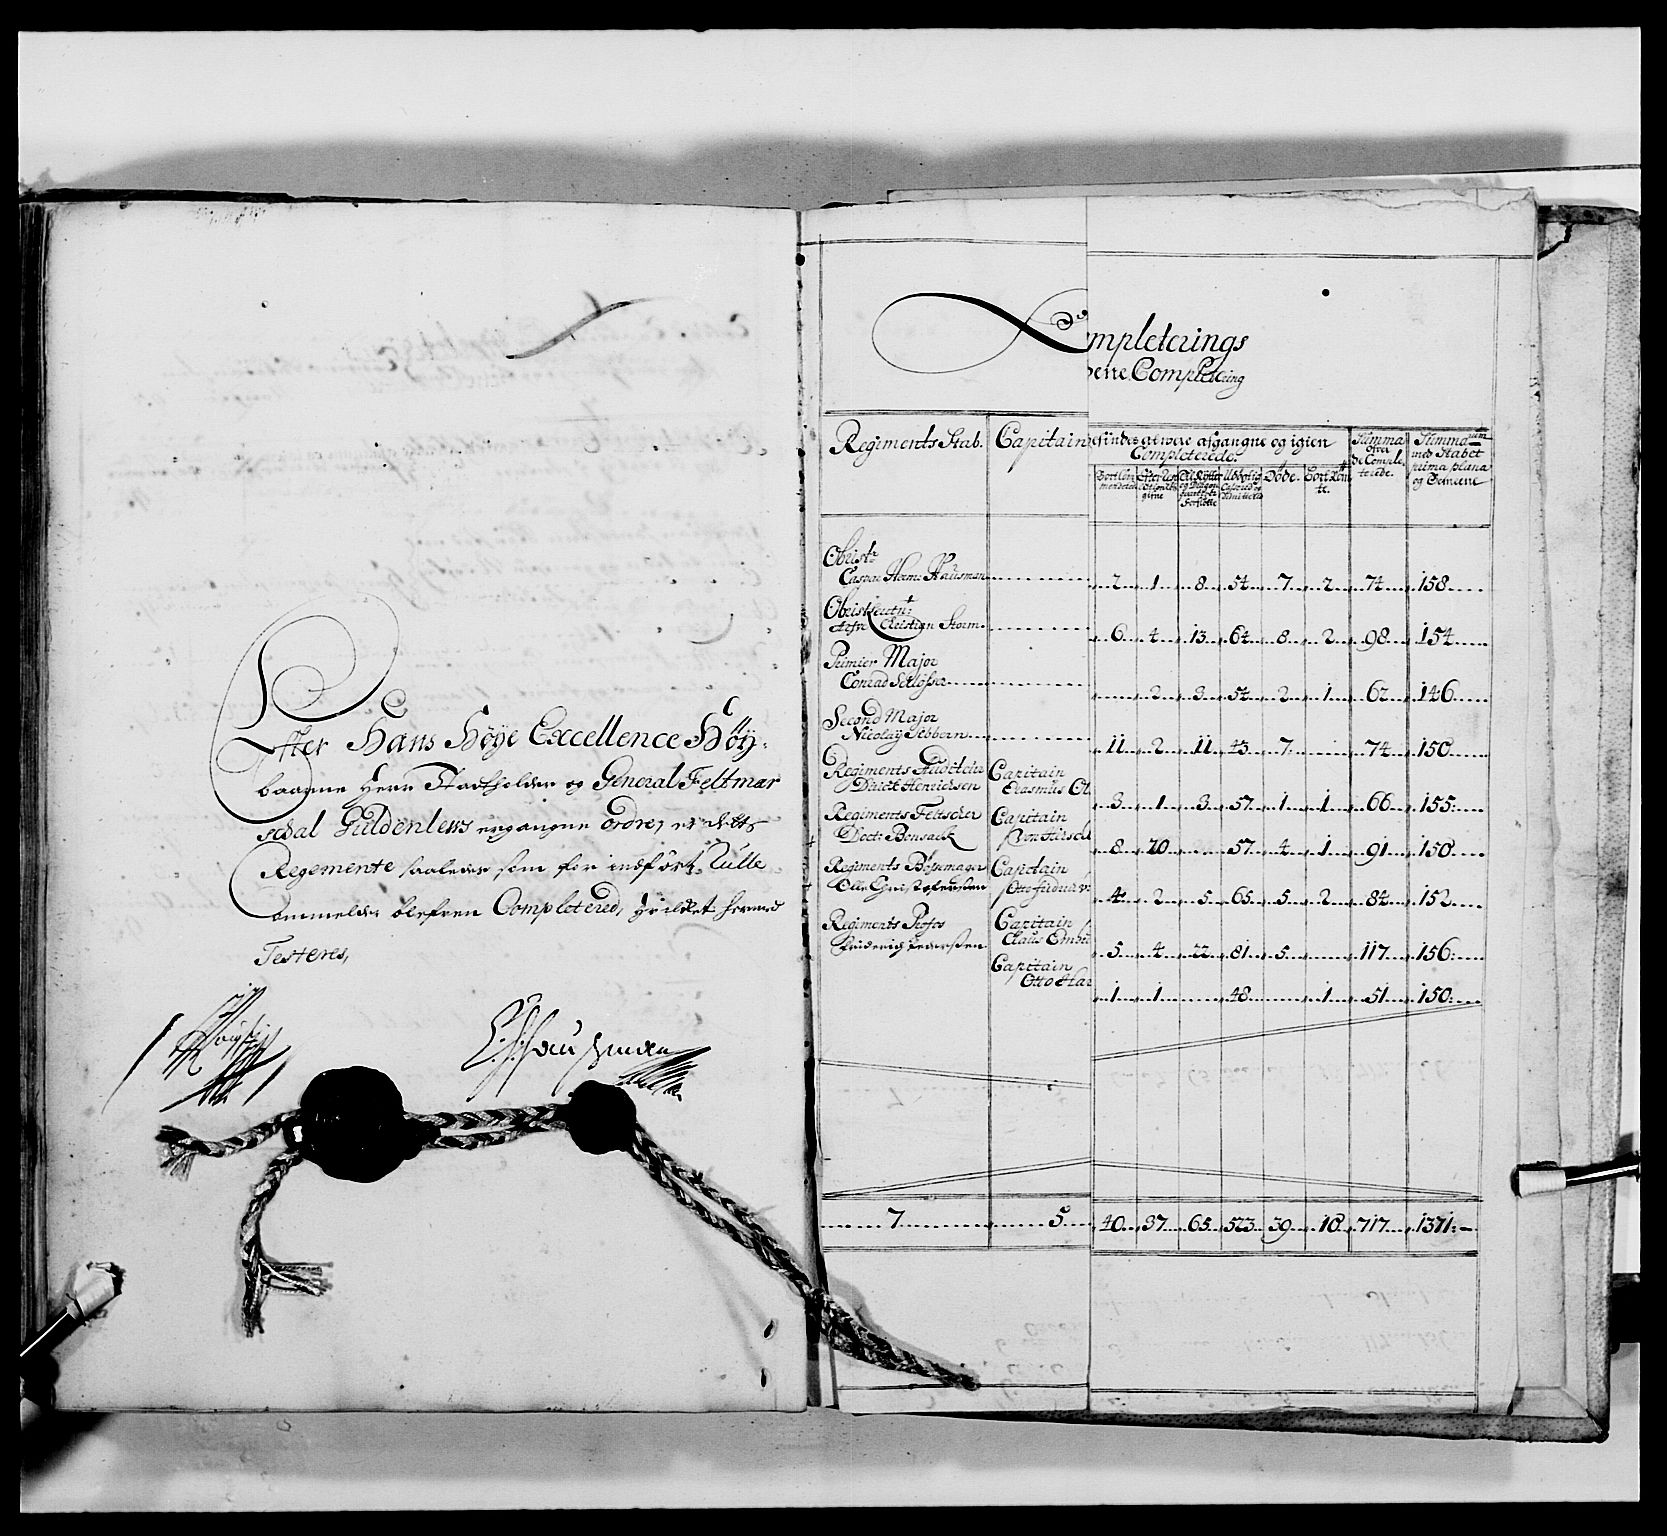 Efter Hans Høye Excellence Høÿ-
baarne Herr Stadtholder og General Feltmar
schal Güldenlews ergangne ordre, er dette
Regemente saaledes som for indført Rulle
ommelder blefven Completered, hvilcket hermed
Testeres,
Completerings
Completering
Regiments Stab.
Capitain
befindes at were afgangne og igien
Completerede.
Summa
ofver
de Comple-
terede.
Summarum
med Stabet
prima plana
og Gemeene
Døde.
Obrister
Caspar Herm: Hausman
2 1 8 54 7 2 74 158
Obristleutn:
Christian Storm
6 4 13 64 8 2 98 154
Premier Major
Conrad Schløsser
2 3 54 2 1 62 146
Second Major
Nicolaÿ Sibbern
11 2 11 43 7 74 150
Regiments Auditeur
Henricksen
Capitain
Erasmus
3 1 3 57 1 1 66 155
Regiments Feltscher
Bonsack
Capitain
8 20 57 4 1 91 150
Regiments Bøssemager
Olle Christophersen
Capitain
4 2 5 65 5 2 84 152
Regiments Profos
Friderich Pedersen
Capitain
Claus
5 4 22 81 5 117 156
Capitain
Otto
1 1 48 1 51 150
7 5 40 37 65 523 39 10 717 1371